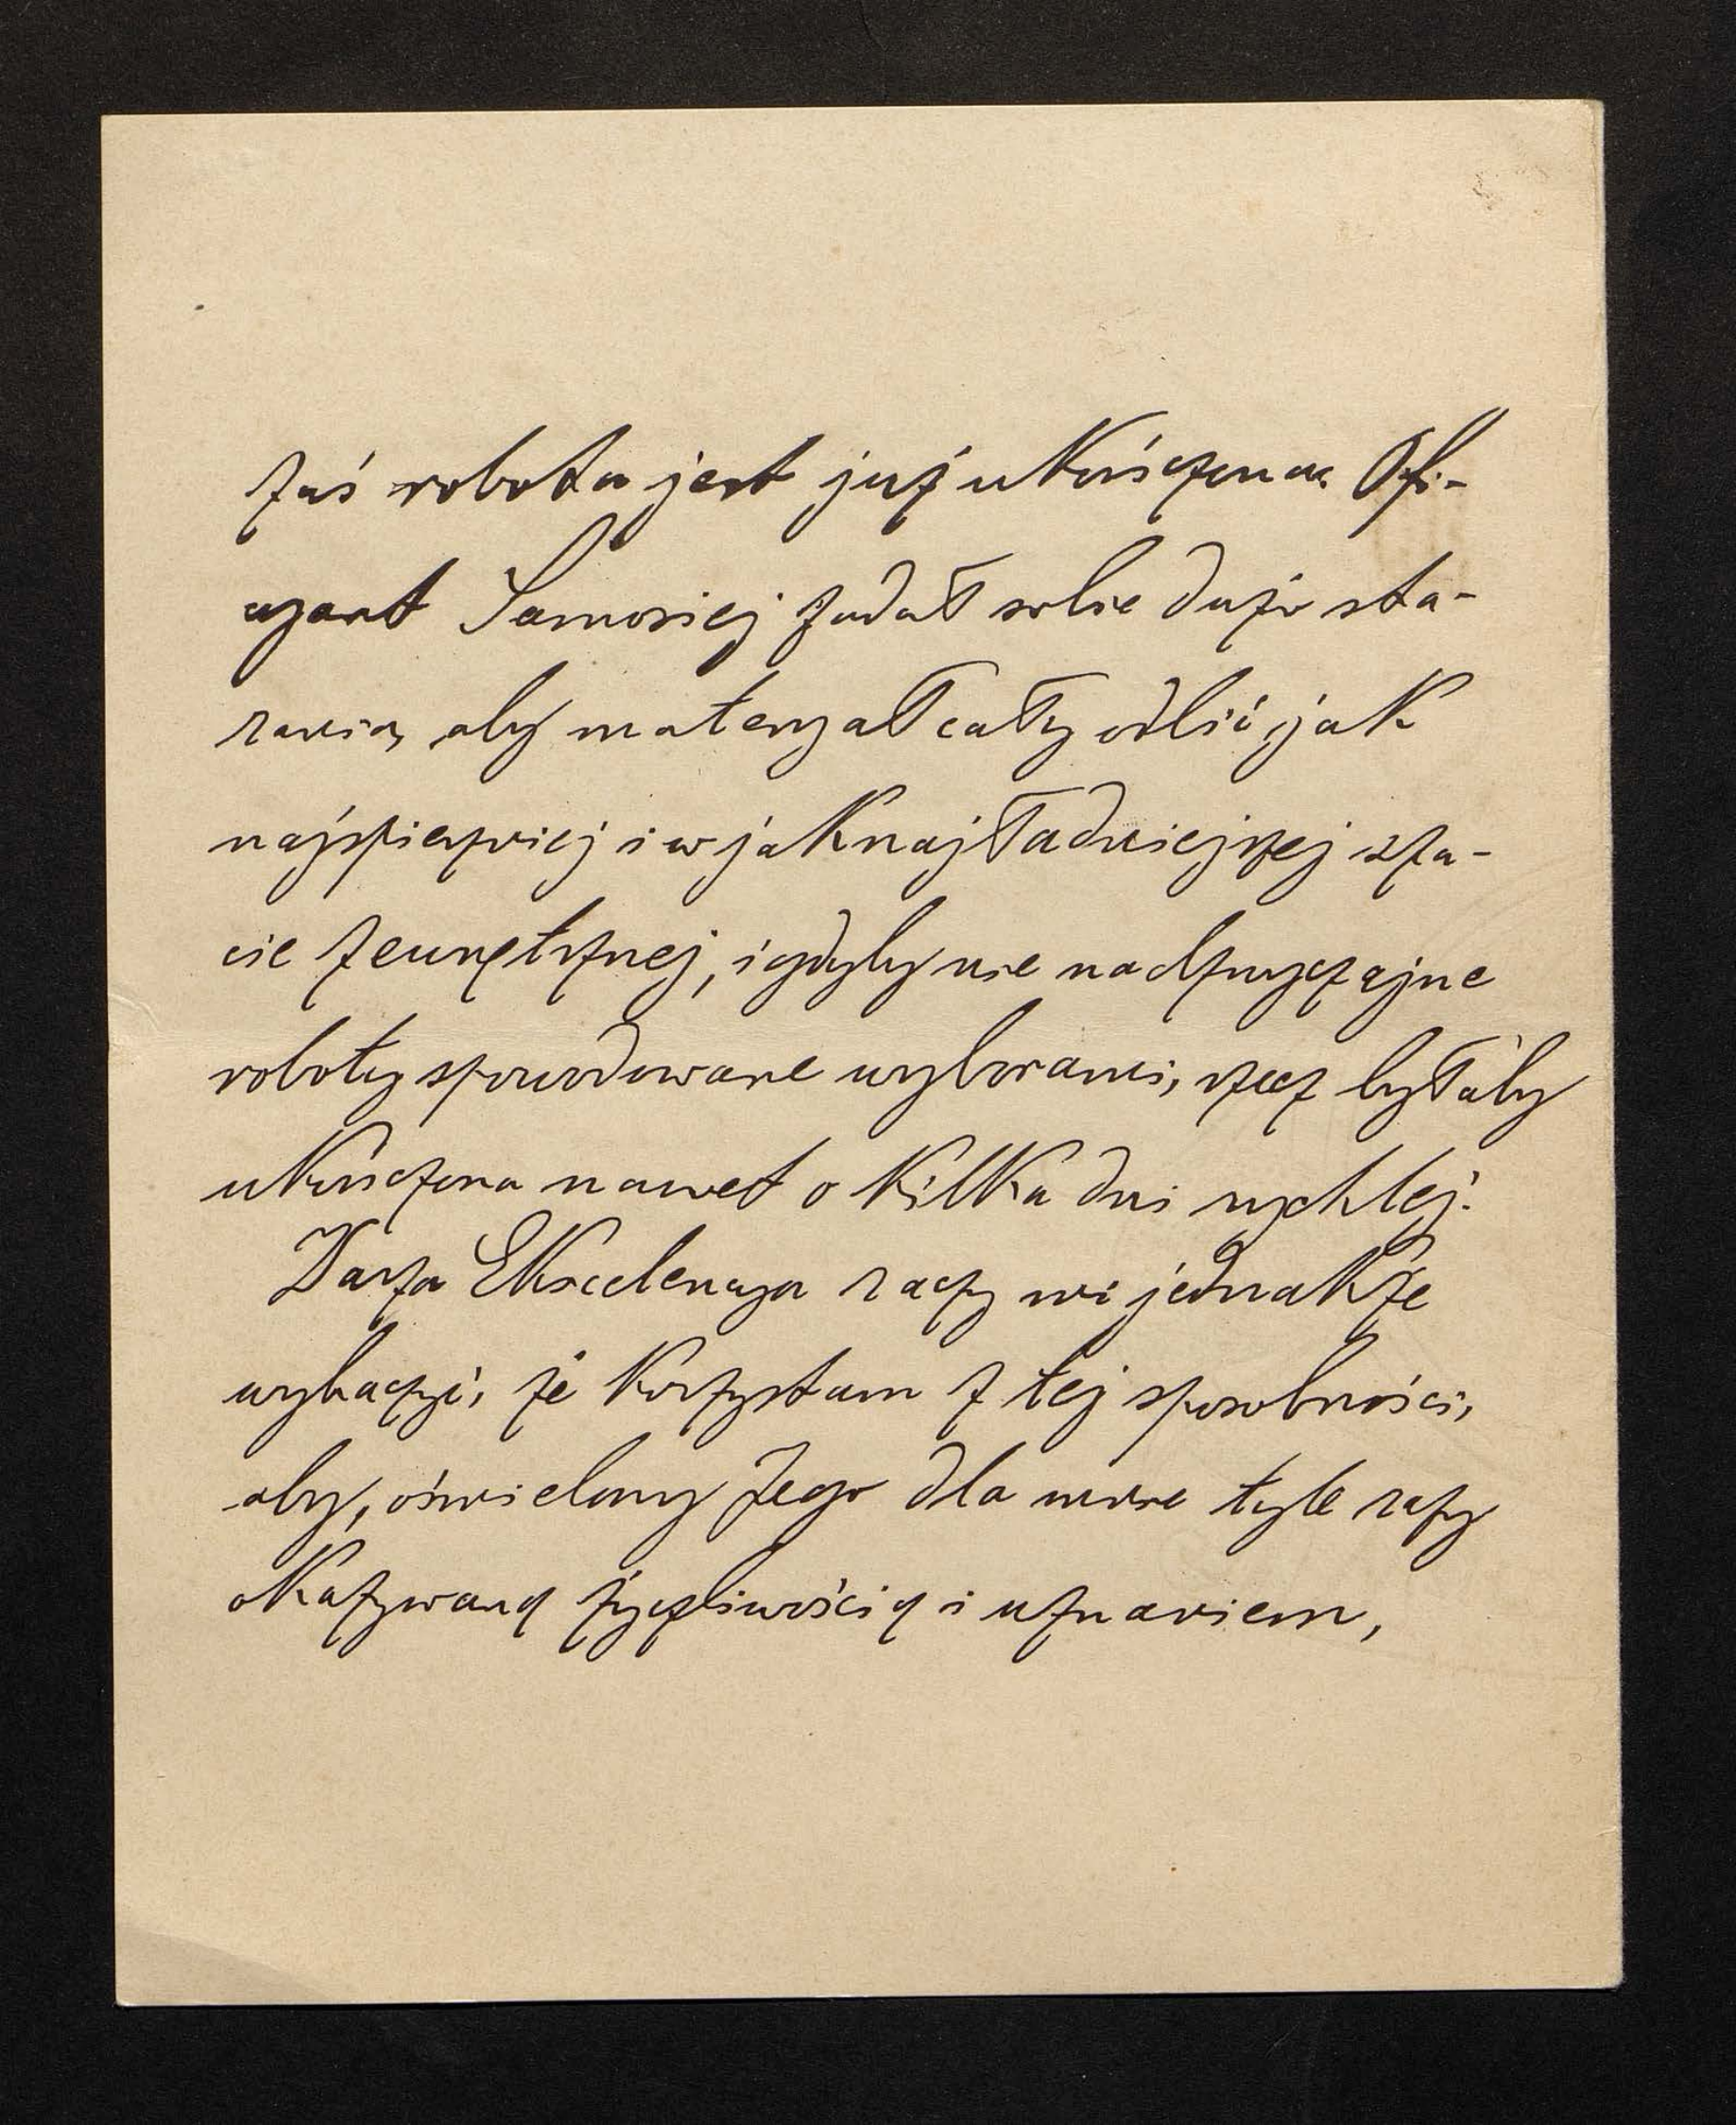 zaś robota jest już ukończona. Ofi-
cyant Samosiej zadał sobie dużo sta-
rania, aby materyał cały odbić jak
najspieszniej i w jaknajładniejszej sza-
cie zewnętrznej, i gdyby nie nadzwyczajne
roboty spowodowane wyborami, rzecz byłaby
ukończona nawet o kilka dni rychlej.
Wasza Ekscelencya raczy mi jednakże
wybaczyć, że korzystam z tej sposobności,
aby, ośmielony Jego dla mnie tyle razy
okazywaną życzliwością i uznaniem,